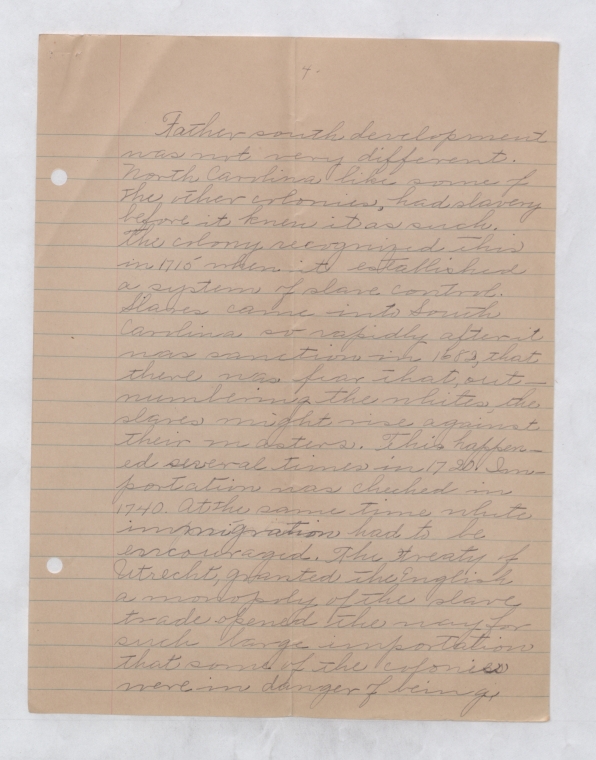 4.
Father south development
was not very different.
North Carolina like some of
the other colonies, had slavery
before it knew it as such.
The colony recognized this
in 1715 when it established
a system of slave control.
Slaves came into South
Carolina so rapidly after it
was sanction in 1682, that
there was fear that, out-
numbering the whites, the
slaves might rise against
their masters. This happen-
ed several times in 1720. Im-
portation was checked in
1740. At the same time white
immigration had to be
encouraged. The treaty of
Utrecht, granted the English
a monopoly of the slave
trade opened the way for
such large importation
that some of the colonies
were in danger of being